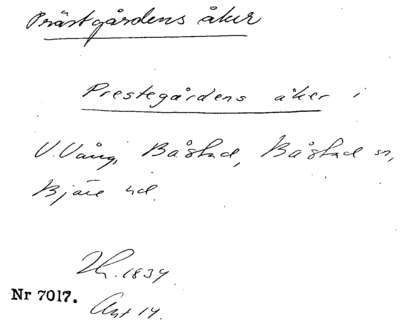 Prästgårdens åker
Prestegårdens åker i
V. Vång, Båstad, Båstad sn,
Bjäre hd.
1839.
Nr 7017.
Akt 14.